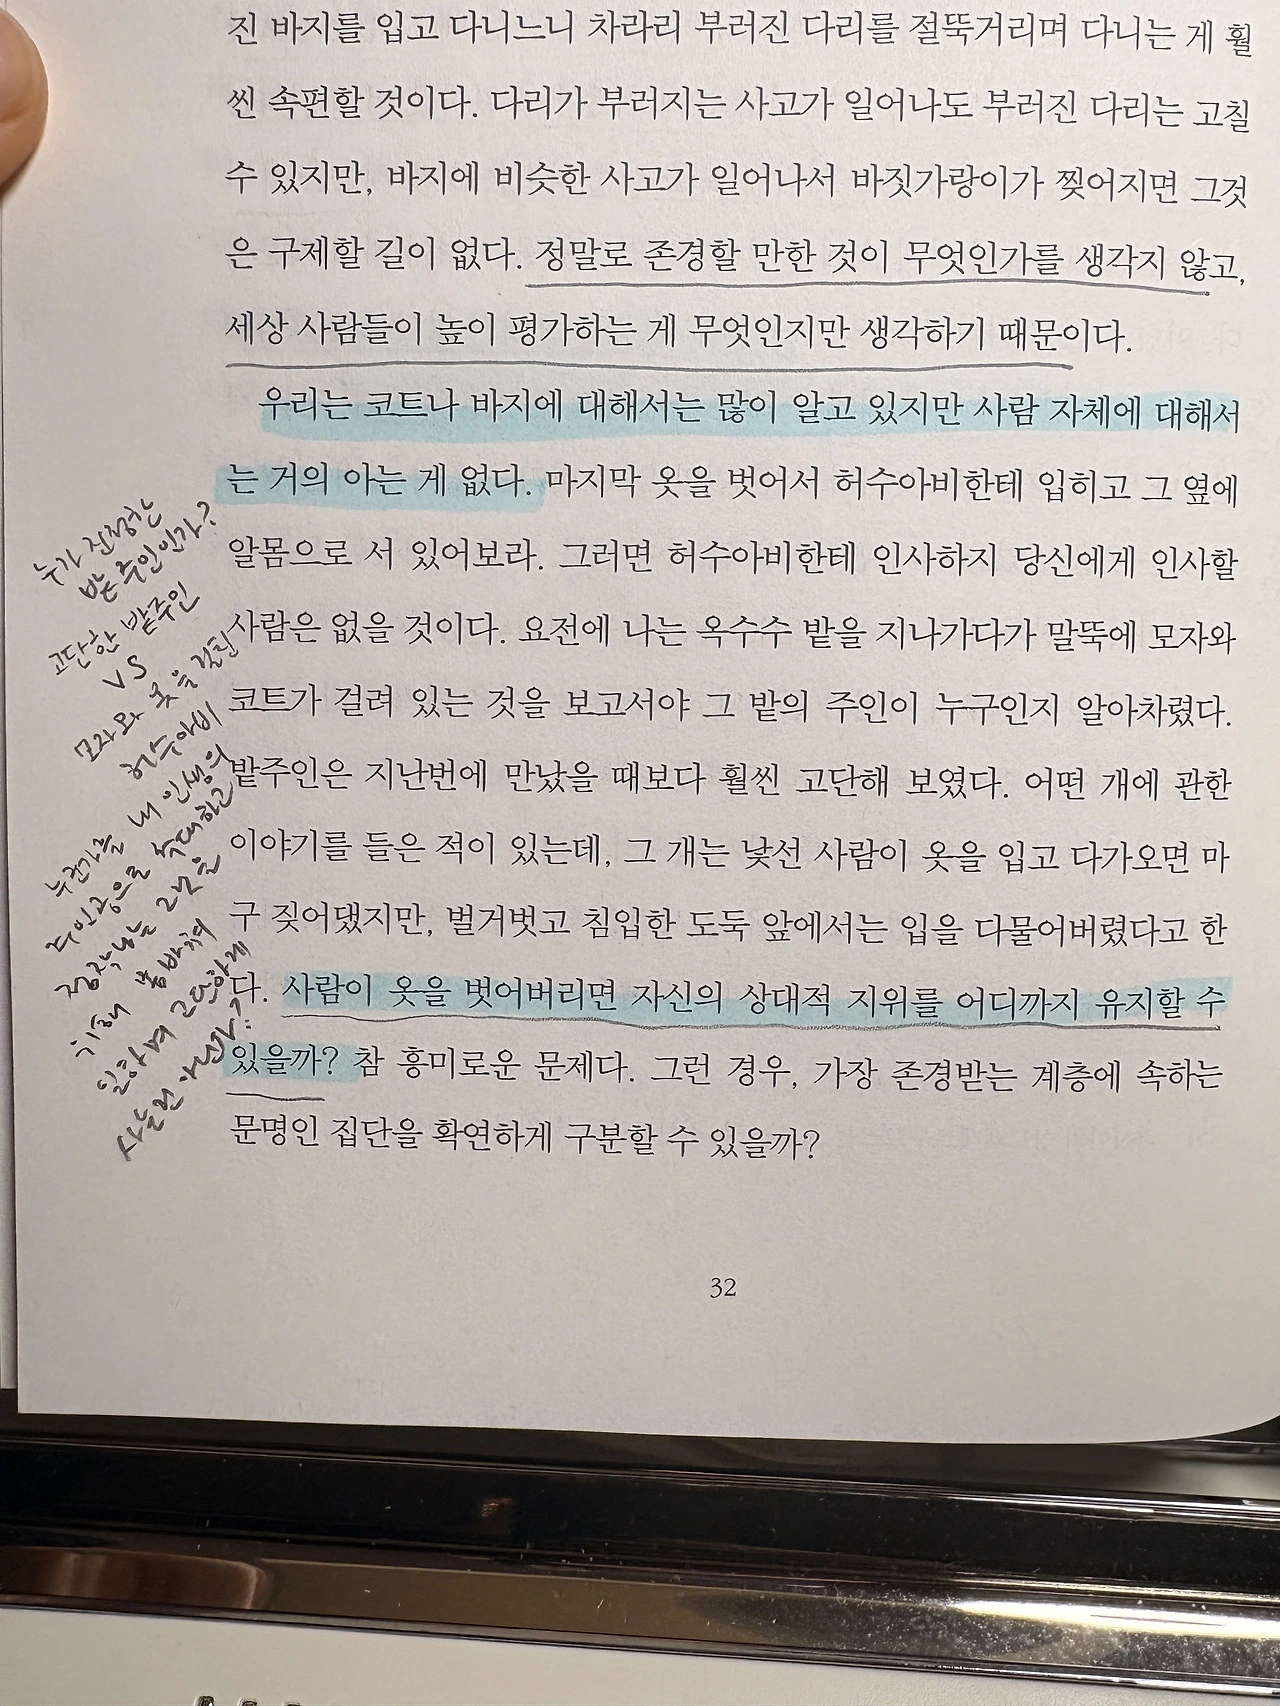 진 바지를 입고 다니느니 차라리 부러진 다리를 절뚝거리며 다니는 게 훨
씬 속편할 것이다. 다리가 부러지는 사고가 일어나도 부러진 다리는 고칠
수 있지만, 바지에 비슷한 사고가 일어나서 바짓가랑이가 찢어지면 그것
은 구제할 길이 없다. 정말로 존경할 만한 것이 무엇인가를 생각지 않고,
세상 사람들이 높이 평가하는 게 무엇인지만 생각하기 때문이다.
우리는 코트나 바지에 대해서는 많이 알고 있지만 사람 자체에 대해서
는 거의 아는 게 없다. 마지막 옷을 벗어서 허수아비한테 입히고 그 옆에
알몸으로 서 있어보라. 그러면 허수아비한테 인사하지 당신에게 인사할
사람은 없을 것이다. 요전에 나는 옥수수 밭을 지나가다가 말뚝에 모자와
코트가 걸려 있는 것을 보고서야 그 밭의 주인이 누구인지 알아차렸다.
밭주인은 지난번에 만났을 때보다 훨씬 고단해 보였다. 어떤 개에 관한
이야기를 들은 적이 있는데, 그 개는 낯선 사람이 옷을 입고 다가오면 마
구 짖어댔지만, 벌거벗고 침입한 도둑 앞에서는 입을 다물어버렸다고 한
다. 사람이 옷을 벗어버리면 자신의 상대적 지위를 어디까지 유지할 수
있을까? 참 흥미로운 문제다. 그런 경우, 가장 존경받는 계층에 속하는
문명인 집단을 확연하게 구분할 수 있을까?
누가 진정한
밭 주인인가?
고단한 밭주인
VS
모자와 옷을 걸친
허수아비
누군가를 내 인생의
주인공으로 초대하고
정작 나는 그것을
위해 몸 바쳐
일하며 고단하게
사는 건 아닌가?
32